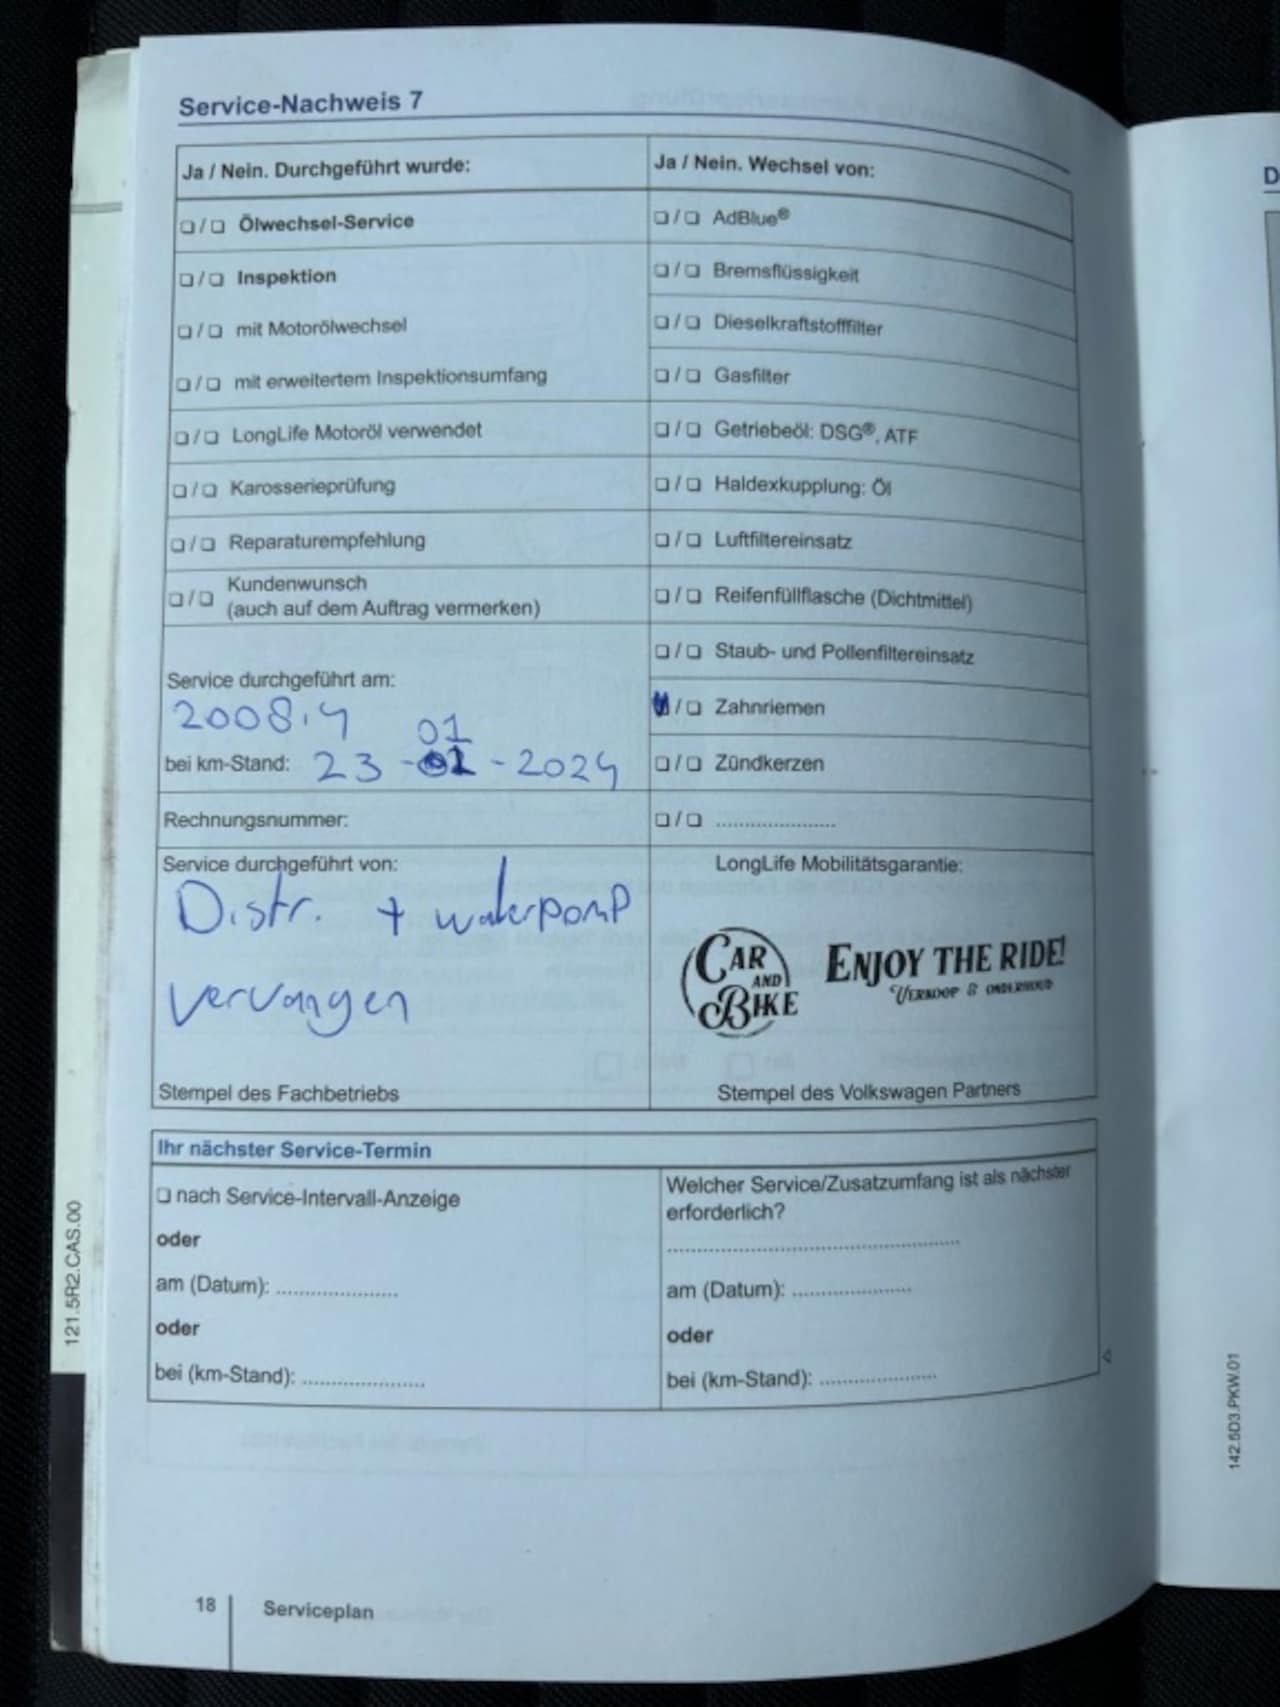 Service-Nachweis 7
Ja / Nein. Durchgeführt wurde:
❏/❏ Ölwechsel-Service
❏/❏ Inspektion
❏/❏ mit Motorölwechsel
❏/❏ mit erweitertem Inspektionsumfang
❏/❏ LongLife Motoröl verwendet
❏/❏ Karosserieprüfung
❏/❏ Reparaturempfehlung
❏/❏ Kundenwunsch
(auch auf dem Auftrag vermerken)
Service durchgeführt am:
200814
01
bei km-Stand: 23-01-2024
Rechnungsnummer:
Service durchgeführt von:
Distr. + waterpomp
vervangen
Stempel des Fachbetriebs
Ja / Nein. Wechsel von:
❏/❏ AdBlue®
❏/❏ Bremsflüssigkeit
❏/❏ Dieselkraftstofffilter
❏/❏ Gasfilter
❏/❏ Getriebeöl: DSG®, ATF
❏/❏ Haldexkupplung: Öl
❏/❏ Luftfiltereinsatz
❏/❏ Reifenfüllflasche (Dichtmittel)
❏/❏ Staub- und Pollenfiltereinsatz
❏/❏ Zahnriemen
❏/❏ Zündkerzen
❏/❏ .....................
LongLife Mobilitätsgarantie:
CAR AND BIKE
ENJOY THE RIDE!
VERKOOP & ONDERHOUD
Stempel des Volkswagen Partners
Ihr nächster Service-Termin
❏ nach Service-Intervall-Anzeige
oder
am (Datum): .....................
oder
bei (km-Stand): .....................
Welcher Service/Zusatzumfang ist als nächster
erforderlich?
..................................................
am (Datum): .....................
oder
bei (km-Stand): .....................
18
Serviceplan
121.5R2.CAS.00
D
142.5D3.PKW.01